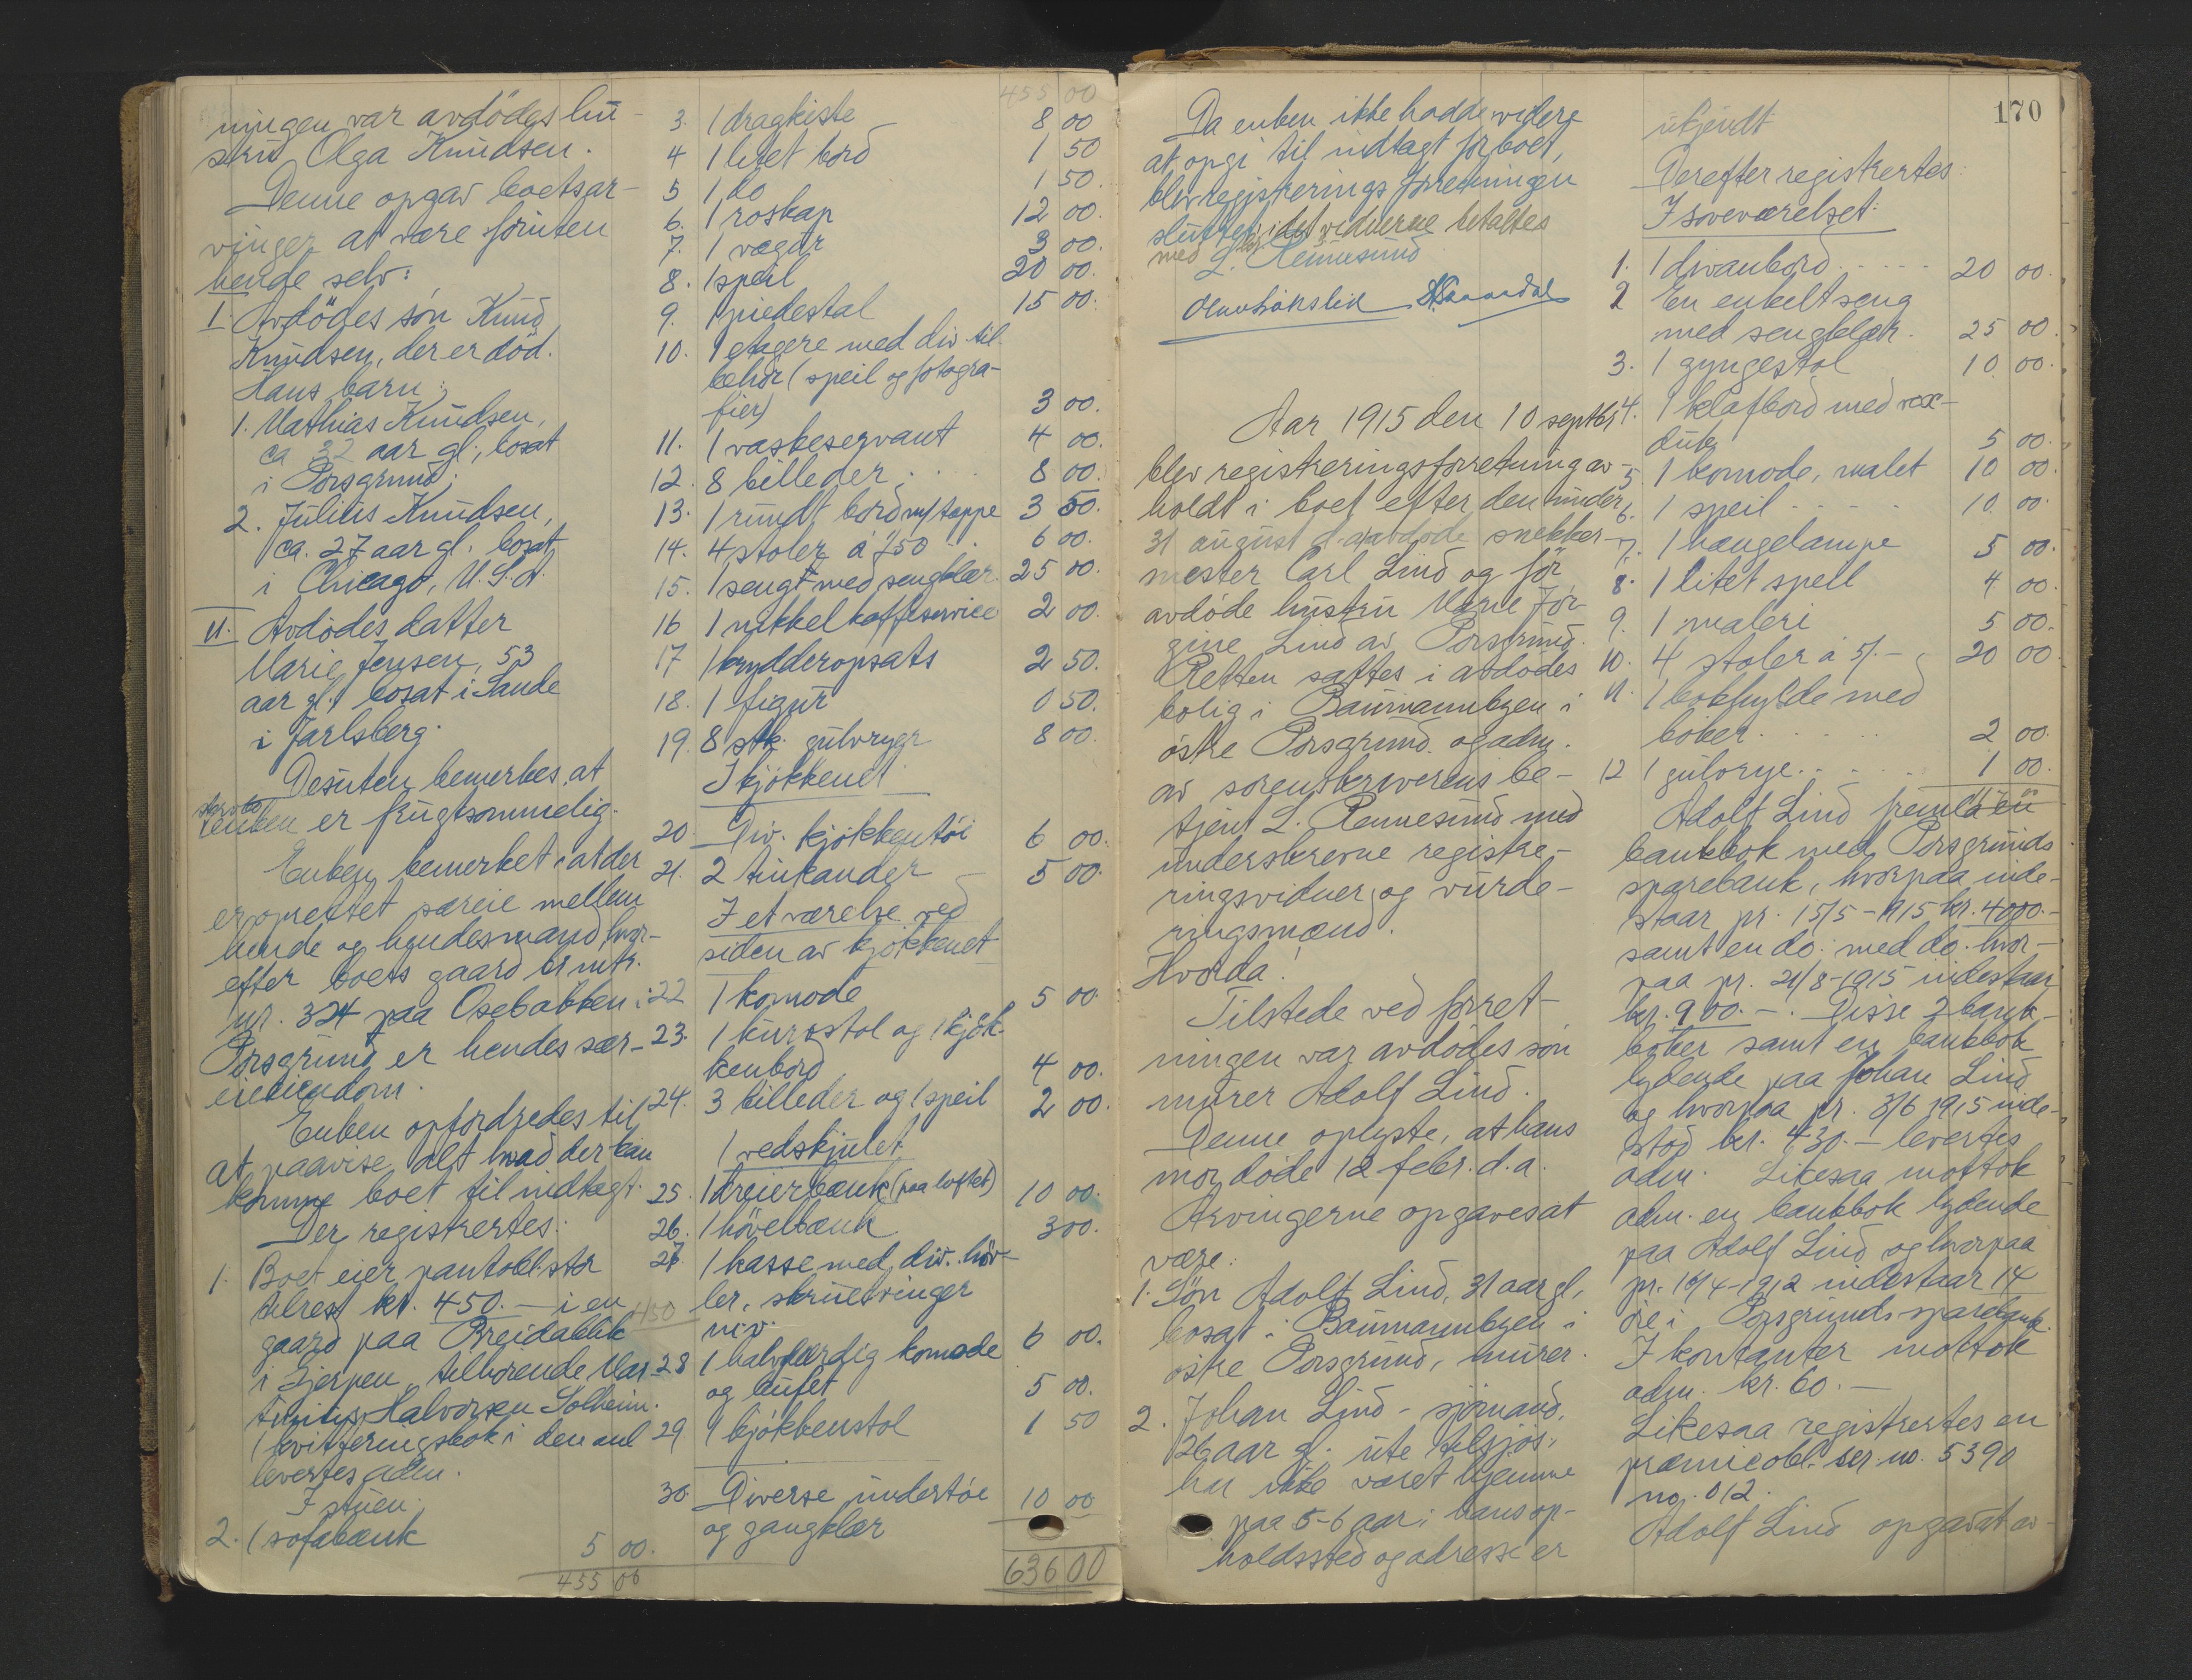 ningen var avdödes hu-
stru Olga Knudsen.
Denne opgav boets ar-
vinger at være foruten
hende selv:
I. Avdödes sön Knud
Knudsen, der er död.
Hans barn:
1. Mathias Knudsen,
ca 32 aar gl., bosat
i Porsgrund.
2. Julius Knudsen,
ca. 27 aar gl. bosat
i Chicago, U.S.A.
II. Avdödes datter
Marie Jensen, 53
aar gl. bosat i Sande
i Jarlsberg.
Desuten bemerkes, at
enken er frugtsommelig.
Enken bemerket, at der
er oprettet særeie mellem
hende og hendes mand hvor-
efter boets gaard br. mtr.
nr. 324 paa Osebakken i
Porsgrund er hendes sær-
eieeiendom.
Enken opfordredes til
at paavise alt hvad der kan
komme boet til indtægt.
Der registrertes:
1. Boet eier pantobl. stor
tilrest kr. 450.- i en 450
gaard paa Breidablik
i Gjerpen tilhörende Mar-
Halvorsen Solheim.
1 kvitteringsbok i den anl
levertes adm.
I stuen:
2. 1 sofabænk 5 00.
455 00
455 00
3. 1 dragkiste 8 00
4 1 litet bord 1 50
5 1 do 1 50.
6. 1 roskap 12 00.
7. 1 vægur 3 00.
8. 1 speil 20 00.
9. 1 piedestal 15 00.
10. 1 etagere med div. til
behör (speil og fotogra-
fier) 3 00.
11. 1 vaskeservant 4 00.
12. 8 billeder 8 00.
13. 1 rundt bord m/ teppe 3 50.
14. 4 stoler á 1,50 6 00.
15. 1 seng med sengklær 25 00.
16 1 nikkel kaffeservice 2 00.
17 1 krydderopsats 2 50.
18. 1 figur 0 50.
19. 8 stk. gulvryer 8 00.
I kjökkenet
20. Div. kjökkentöi 6 00.
21. 2 tinkander 5 00.
I et værelse ved
siden av kjökkenet
22 1 komode 5 00.
23. 1 kurvstol og 1 kjök-
kenbord 4 00.
24. 3 billeder og 1 speil 2 00.
I vedskjulet
25. 1 dreierbænk (paa loftet) 10 00.
26. 1 hövelbænk 3 00.
27. 1 kasse med div. höv-
ler, skruetvinger
m.v. 6 00.
28 1 halvfærdig komode
og bufet 5 00.
29 1 kjökkenstol 1 50
30. Diverse undertöi
og gangklær 10 00
636 00
Da enken ikke hadde videre
at opgi til indtægt for boet,
blev registreringsforretningen
sluttet, idet vidnerne betaltes
med
L. Rennesund
Aar 1915 den 10 septbr.
blev registreringsforretning av-
holdt i boet efter den under
31 august d.a. avdöde snekker-
mester Carl Lind og för
avdöde hustru Maren Jör-
gine Lind av Porsgrund.
Retten sattes i avdödes
bolig i Baumannbyen i
östre Porsgrund og adm.
av sorenskriverens be-
tjent L. Rennesund med
underskrevne registre-
ringsvidner og vurde-
ringsmænd.
Hvorda!
Tilstede ved forret-
ningen var avdödes sön
murer Adolf Lind.
Denne oplyste, at hans
mor döde 12 febr. d.a.
Arvingerne opgaves at
være:
1. Sön Adolf Lind, 31 aar gl.
bosat i Baumannbyen i
östre Porsgrund, murer.
2. Johan Lind - sjömand,
26 aar gl. ute tilsjös;
har ikke været hjemme
paa 5-6 aar; hans op-
holdssted og adresse er
170
ukjendt
Derefter registrertes:
I soveværelset:
1. 1 divanbord 20 00.
2 En enkelt seng
med sengklær. 25 00.
3. 1 gyngestol 10 00.
4. 1 klafbord med vox-
duk 5 00.
5. 1 komode, malet 10 00
6. 1 speil 10 00.
7. 1 hængelampe 5 00.
8. 1 litet speil 4 00.
9. 1 maleri 5 00.
10. 4 stoler á 5/- 20 00
11. 1 bokhylde med
böker 2 00.
12 1 gulvrye 1 00.
Adolf Lind fremla en
bankbok med Porsgrunds
sparebank, hvorpaa inde-
staar pr. 15/5-1915 kr. 4000.-
samt en do. med do. hvor-
paa pr. 21/8-1915 indestaar
kr. 900.-. Disse 2 bank-
böker samt en bankbok
lydende paa Johan Lind
og hvorpaa pr. 3/6 1915 inde-
stod kr. 430.- levertes
adm. Likesaa mottok
adm. en bankbok lydende
paa Adolf Lind og hvorpaa
pr. 16/4-1912 indestaar 14
öre i Porsgrunds sparebank.
I kontanter mottok
adm. kr. 60.-
Likesaa registrertes en
præmieobl. ser. no. 5390
no. 012.
Adolf Lind opgav at av-